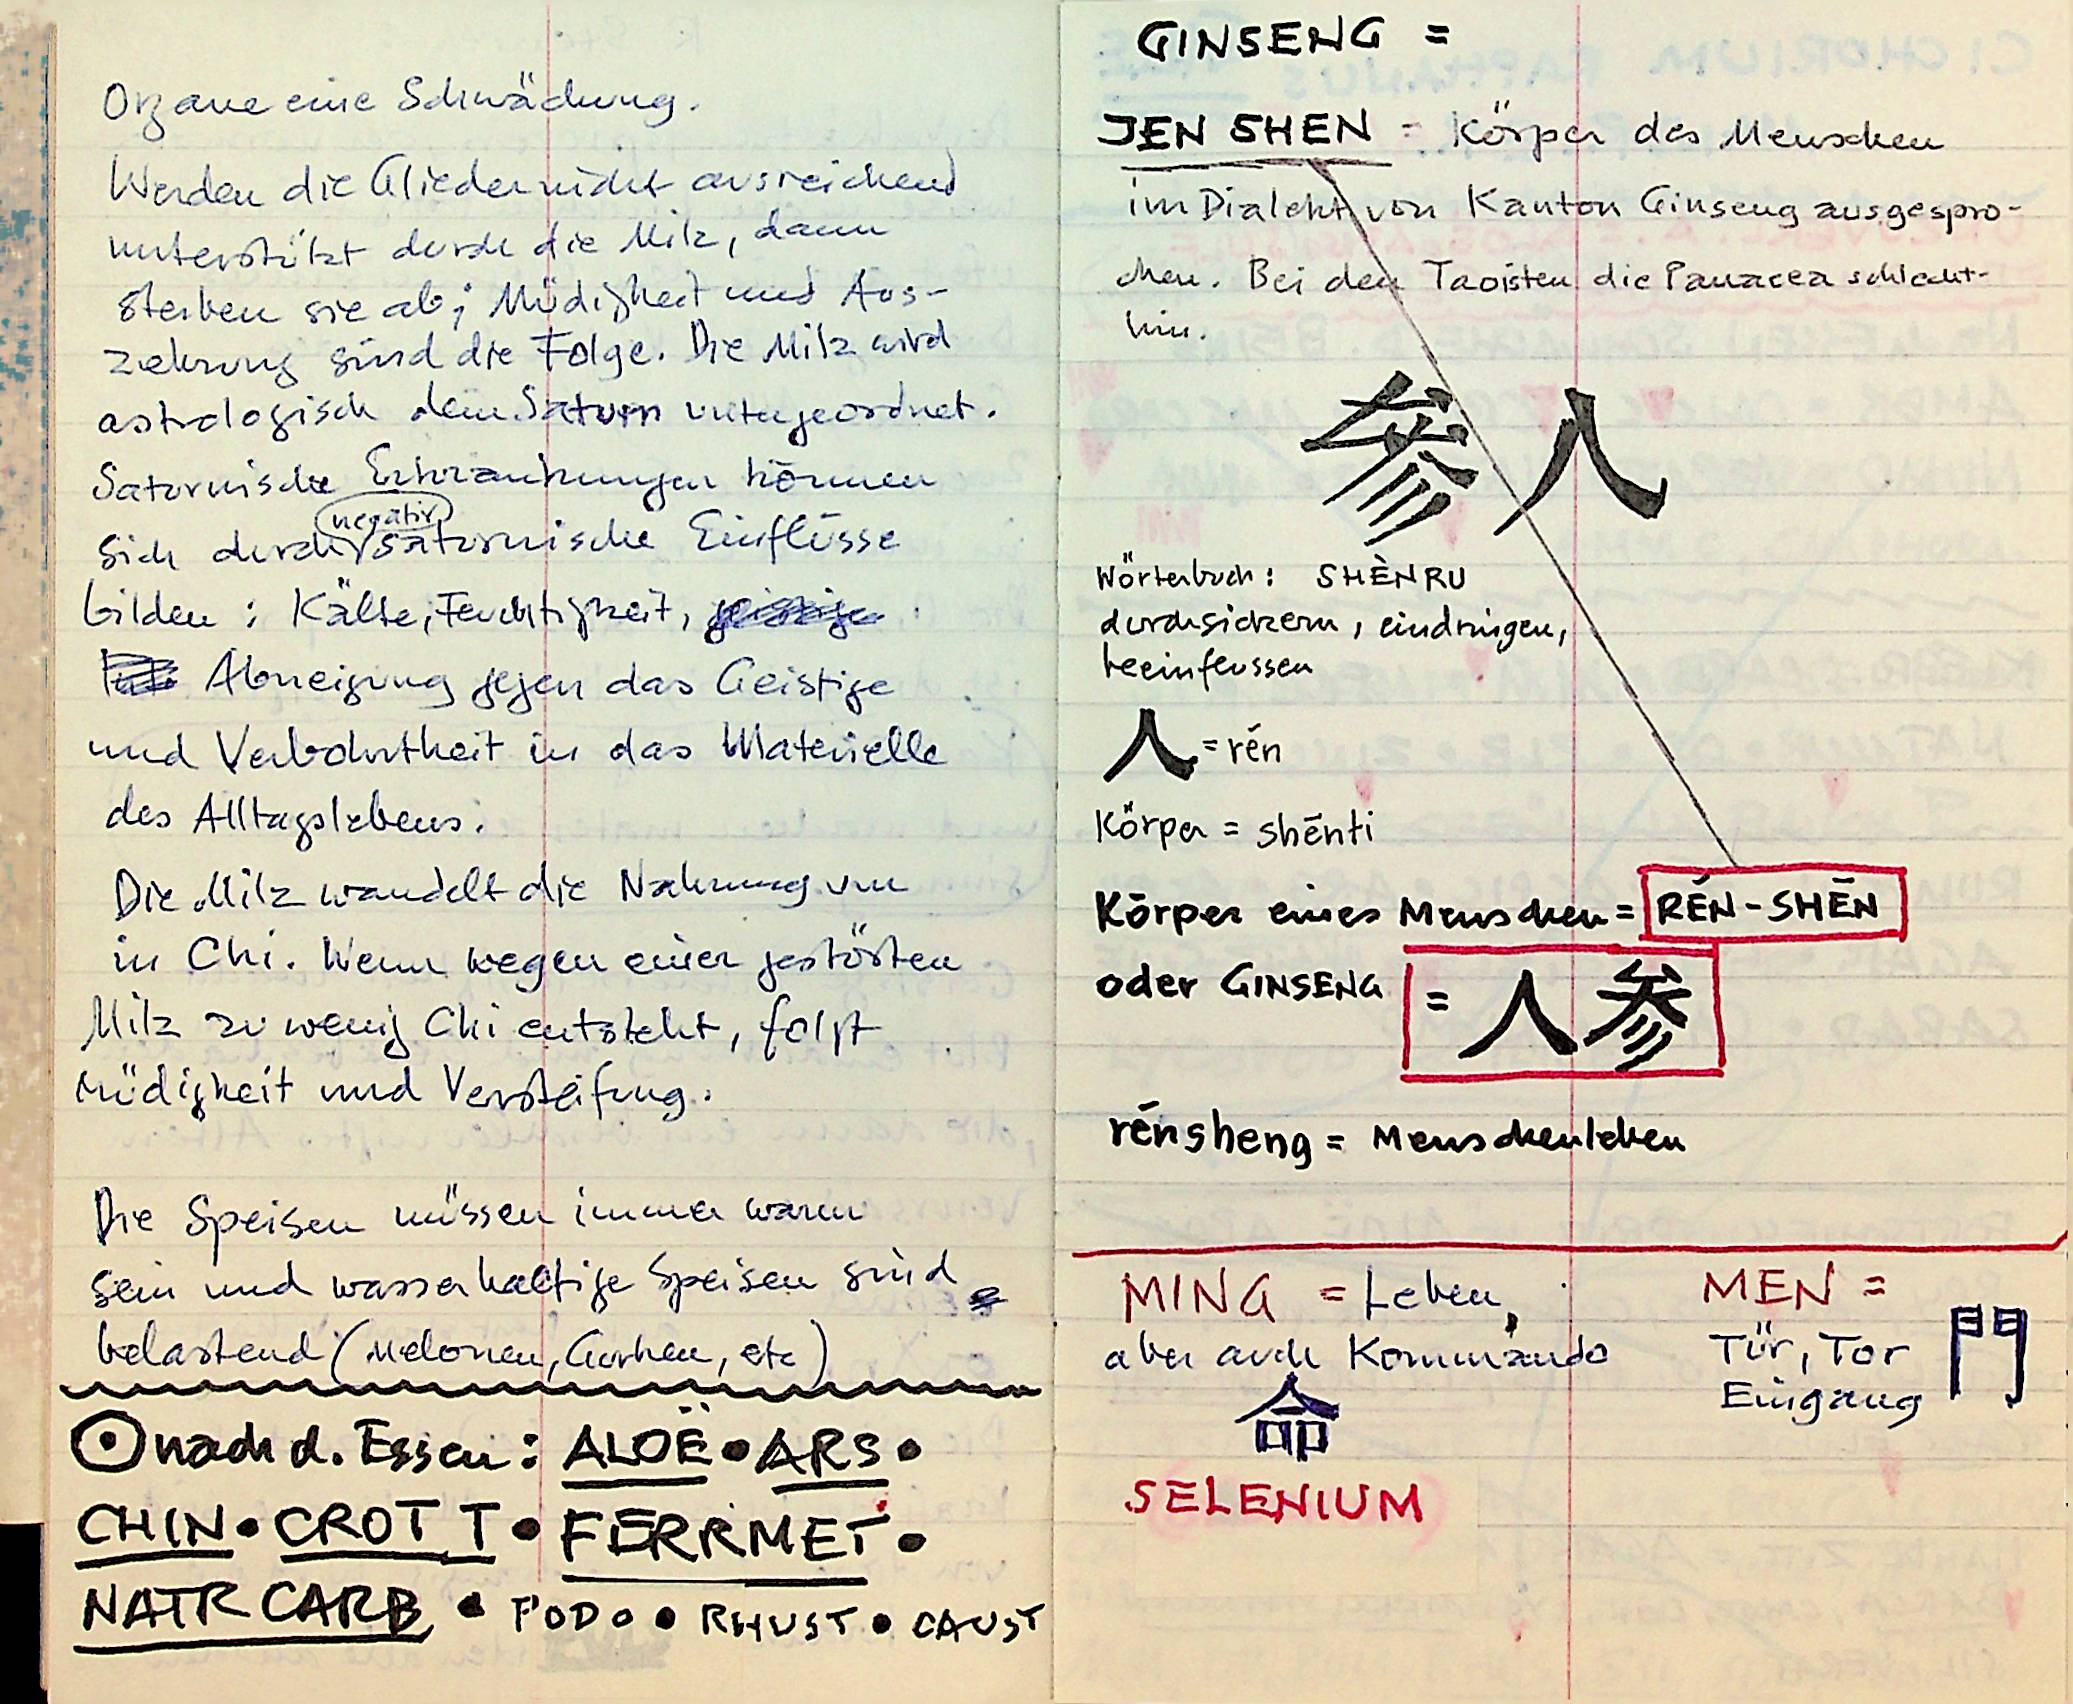 Organe eine Schwächung.
Werden die Glieder nicht ausreichend
unterstützt durch die Milz, dann
sterben sie ab; Müdigkeit und Aus-
zehrung sind die Folge. Die Milz wird
astrologisch dem Saturn untergeordnet.
Saturnische Erkrankungen können
negativ
sich durch saturnische Einflüsse
bilden: Kälte, Feuchtigkeit,
Abneigung gegen das Geistige
und Verbohrtheit in das Materielle
des Alltagslebens.
Die Milz wandelt die Nahrung um
in Chi. Wenn wegen einer gestörten
Milz zu wenig Chi entsteht, folgt
Müdigkeit und Versteifung.
Die Speisen müssen immer warm
sein und wasserhaltige Speisen sind
belastend (Melonen, Gurken, etc)
nach d. Essen: ALOË • ARS •
CHIN • CROT T • FERRMET •
NATR CARB • PODO • RHUST • CAUST
GINSENG =
JEN SHEN = Körper des Menschen
im Dialekt von Kanton Ginseng ausgespro-
chen. Bei den Taoisten die Panacea schlecht-
hin.
参人
Wörterbuch: SHÈNRU
durchsickern, eindringen,
beeinflussen
人 = rén
Körper = shēnti
Körper eines Menschen = RÉN-SHĒN
oder GINSENG = 人参
rénsheng = Menschenleben
MING = Leben,
aber auch Kommando
命
MEN =
Tür, Tor
Eingang
門
SELENIUM